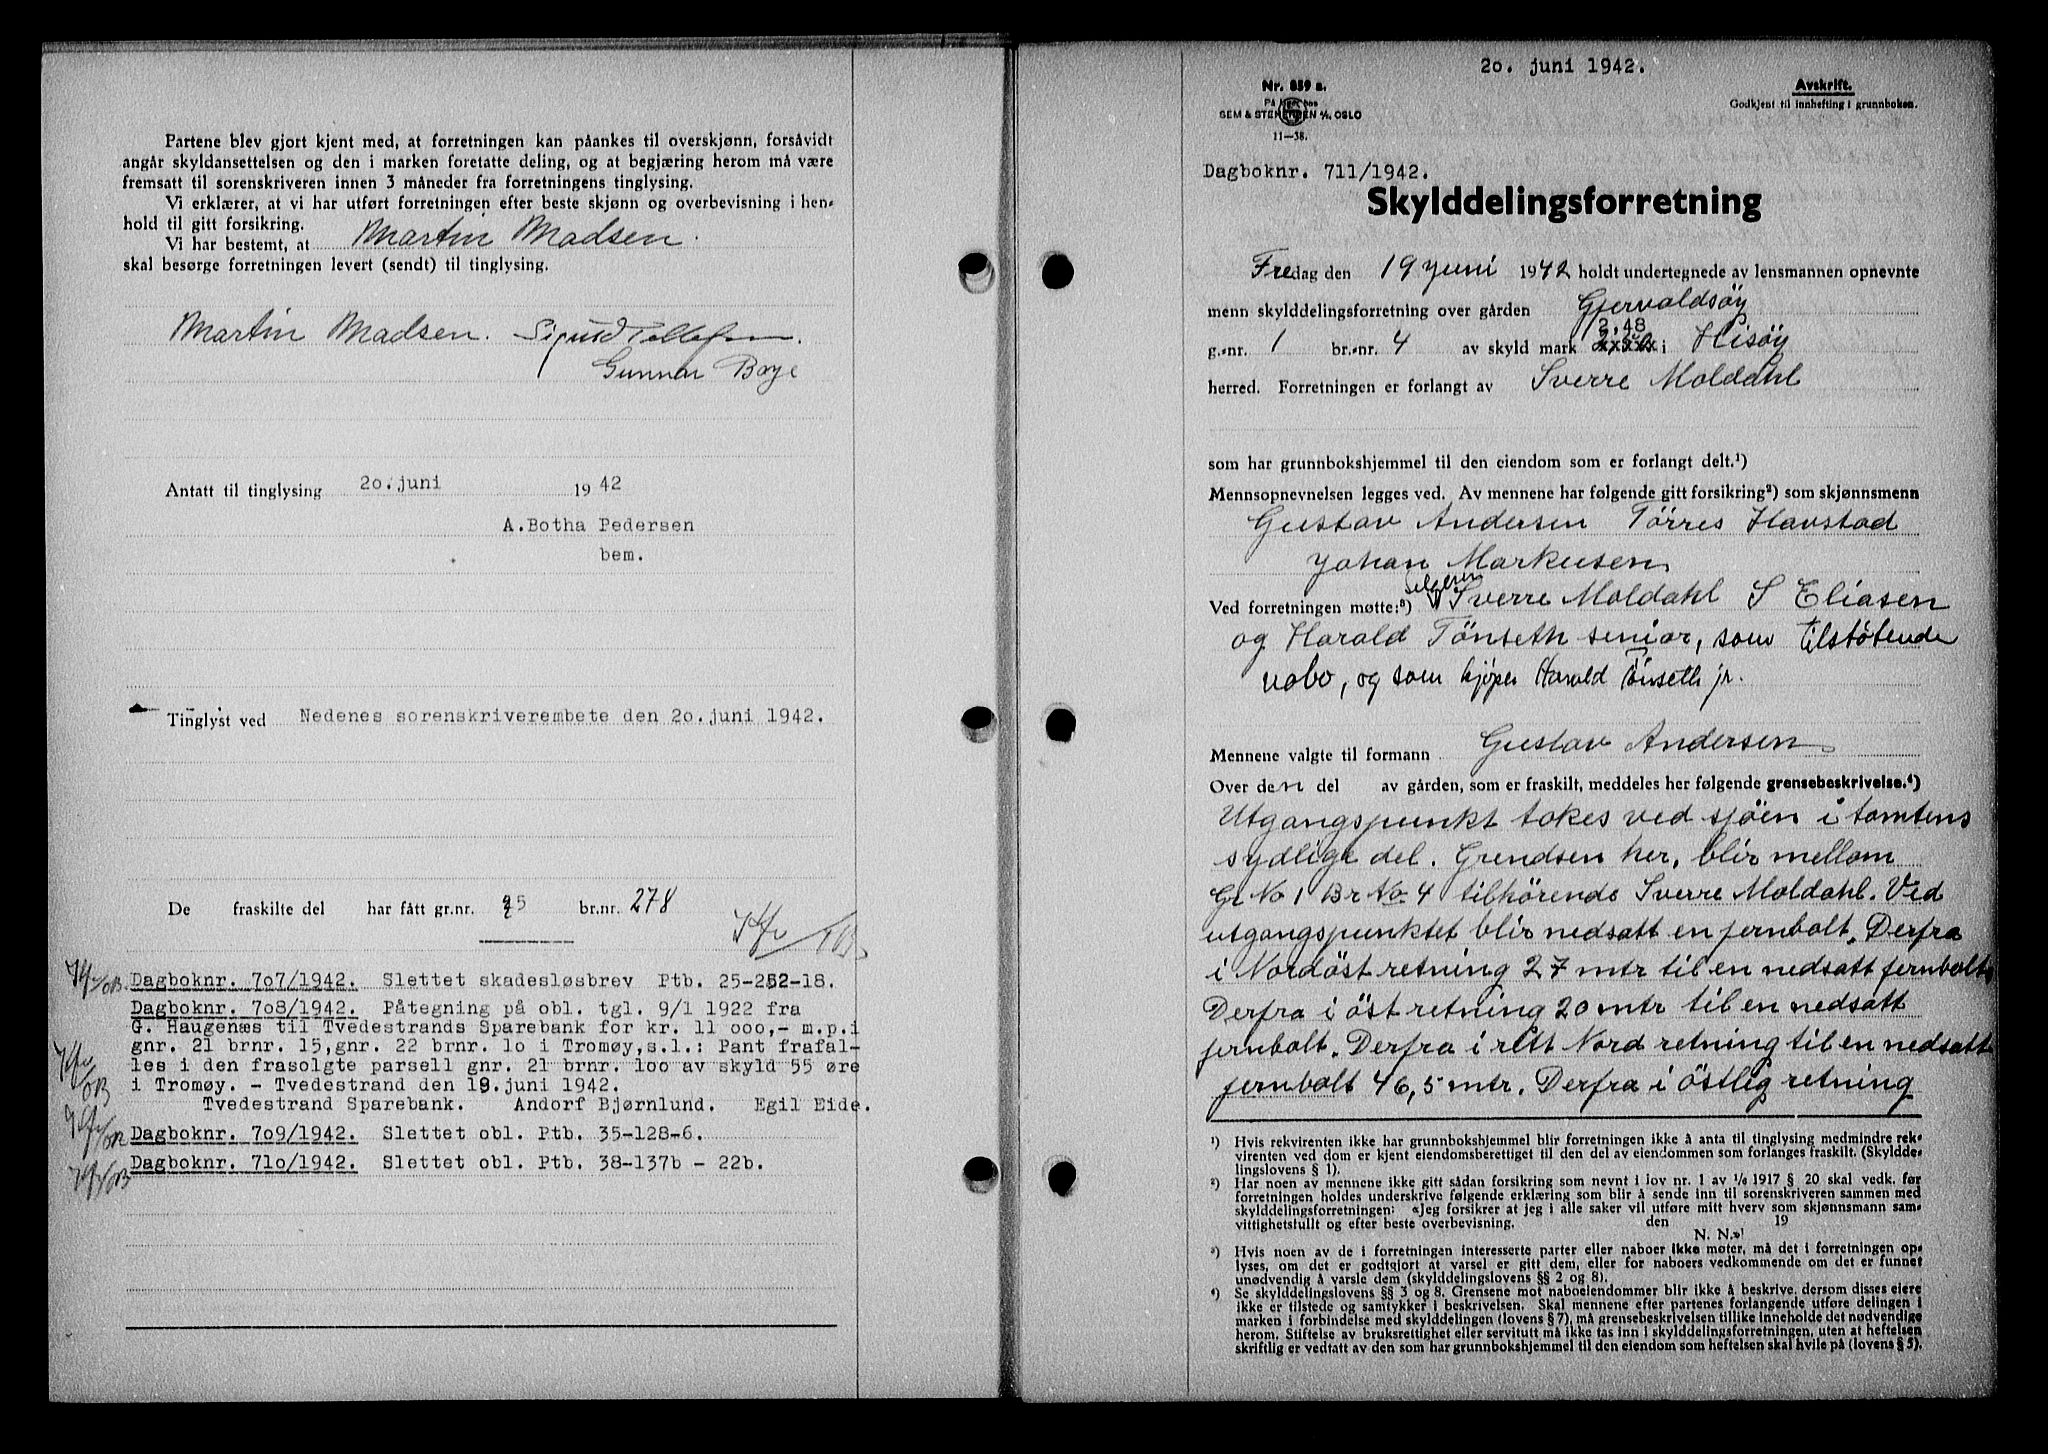 Partene blev gjort kjent med, at forretningen kan påankes til overskjønn, forsåvidt
angår skyldansettelsen og den i marken foretatte deling, og at begjæring herom må være
fremsatt til sorenskriveren innen 3 måneder fra forretningens tinglysing.
Vi erklærer, at vi har utført forretningen efter beste skjønn og overbevisning i hen-
hold til gitt forsikring.
Vi har bestemt, at Martin Madsen.
skal besørge forretningen levert (sendt) til tinglysing.
Martin Madsen. Sigurd Tellefsen.
Gunnar Boye
Antatt til tinglysing 20. juni 1942
A. Botha Pedersen
bem.
Tinglyst ved Nedenes sorenskriverembete den 20. juni 1942.
De fraskilte del har fått gr.nr. 25 br.nr. 278
Dagboknr. 707/1942. Slettet skadesløsbrev Ptb. 25-252-18.
Dagboknr. 708/1942. Påtegning på obl. tgl. 9/1 1922 fra
G. Haugenæs til Tvedestrands Sparebank for kr. 11 000,- m.p.i
gnr. 21 brnr. 15, gnr. 22 brnr. 10 i Tromøy, s.l.: Pant frafal-
les i den frasolgte parsell gnr. 21 brnr. 100 av skyld 55 øre
i Tromøy. - Tvedestrand den 19. juni 1942.
Tvedestrand Sparebank. Andorf Bjørnlund. Egil Eide.
Dagboknr. 709/1942. Slettet obl. Ptb. 35-128-6.
Dagboknr. 710/1942. Slettet obl. Ptb. 38-137b - 22b.
20. juni 1942.
Nr. 859 a.
På lager hos
SEM & STENERSEN A/S OSLO
11—38.
Avskrift.
Godkjent til innhefting i grunnboken.
Dagboknr. 711/1942.
Skylddelingsforretning
Fredag den 19 juni 1942 holdt undertegnede av lensmannen opnevnte
menn skylddelingsforretning over gården Gjervoldsøy
g.-nr. 1 br.-nr. 4 av skyld mark 2.48 i Hisøy
herred. Forretningen er forlangt av Sverre Moldahl
som har grunnbokshjemmel til den eiendom som er forlangt delt.¹)
Mennsopnevnelsen legges ved. Av mennene har følgende gitt forsikring²) som skjønnsmenn
Gustav Andersen Tørres Havstad
Johan Markusen
Ved forretningen møtte:³) Selgeren Sverre Moldahl S Eliasen
og Harald Tønseth senior, som tilstøtende
nabo, og som kjøper Harald Tønseth jr.
Mennene valgte til formann Gustav Andersen
Over den del av gården, som er fraskilt, meddeles her følgende grensebeskrivelse.⁴)
Utgangspunkt tokes ved sjøen i tomtens
sydlige del. Grendsen her, blir mellom
Gr No 1 Br No 4 tilhørende Sverre Moldahl. Ved
utgangspunktet blir nedsatt en jernbolt. Derfra
i Nordöst retning 27 mtr til en nedsatt jernbolt,
Derfra i öst retning 20 mtr til en nedsatt
jernbolt. Derfra i rett Nord retning til en nedsatt
jernbolt 46,5 mtr. Derfra i östlig retning
¹) Hvis rekvirenten ikke har grunnbokshjemmel blir forretningen ikke å anta til tinglysing medmindre rek-
virenten ved dom er kjent eiendomsberettiget til den del av eiendommen som forlanges fraskilt. (Skyldde-
lingslovens § 1).
²) Har noen av mennene ikke gitt sådan forsikring som nevnt i lov nr. 1 av 1/6 1917 § 20 skal vedk. før
forretningen holdes underskrive følgende erklæring som blir å sende inn til sorenskriveren sammen med
skylddelingsforretningen: «Jeg forsikrer at jeg i alle saker vil utføre mitt hverv som skjønnsmann sam-
vittighetsfullt og efter beste overbevisning. den 19
N. N.»
³) Hvis noen av de i forretningen interesserte parter eller naboer ikke møter, må det i forretningen op-
lyses, om det er godtgjort at varsel er gitt dem, eller for naboers vedkommende om det er funnet
unødvendig å varsle dem (skylddelingslovens §§ 2 og 8).
⁴) Se skylddelingslovens §§ 3 og 8. Grensene mot naboeiendommer blir ikke å beskrive, dersom disses eiere
ikke er tilstede og samtykker i beskrivelsen. Skal mennene efter partenes forlangende utføre delingen i
marken i forbindelse med skylddelingen (lovens § 7), må grensebeskrivelsen tillike inneholde det nødvendige
herom. Stiftelse av bruksrettighet eller servitutt må ikke tas inn i skylddelingsforretningen, uten at heftelsen
skriftlig er vedtatt av den som har grunnbokshjemmel til den eiendom som heftelsen skal hvile på (lovens § 5).